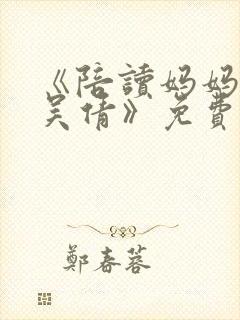 《陪讀媽媽
吴倩》免費
鄭春蓉